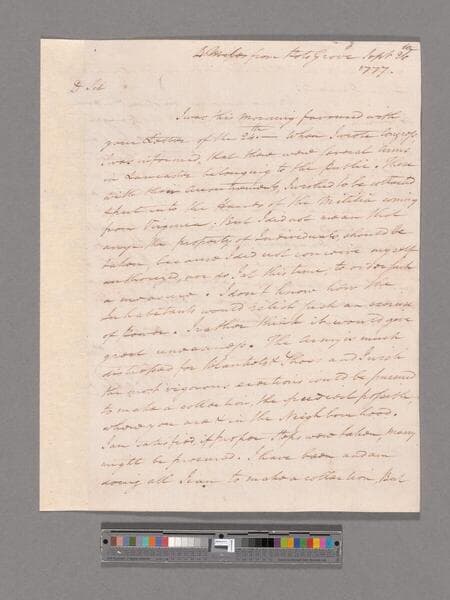 4 Miles from Potts Grove Sept. 26th
1777.
Dr Sir
I was this morning favoured with
your Letter of the 24th. When I wrote Congress
I was informed, that there were several arms
in Lancaster belonging to the public. These
with their accoutrements, I wished to be collected
& put into the Hands of the Militia coming
from Virginia. But I did not mean that
any, the property of Individuals, should be
taken, because I did not conceive myself
authorized, nor do I at this time, to order such
a measure. I don't know how the
Inhabitants would relish such an exercise
of Power. I rather think it would give
great uneasiness. The Army is much
distressed for Blankets & Shoes and I wish
the most vigorous exertions could be pursued
to make a collection, the speediest possible
where you are & in the Neighbourhood.
I am satisfied if proper steps were taken, many
might be procured. I have been and am
doing all I can to make a collection But